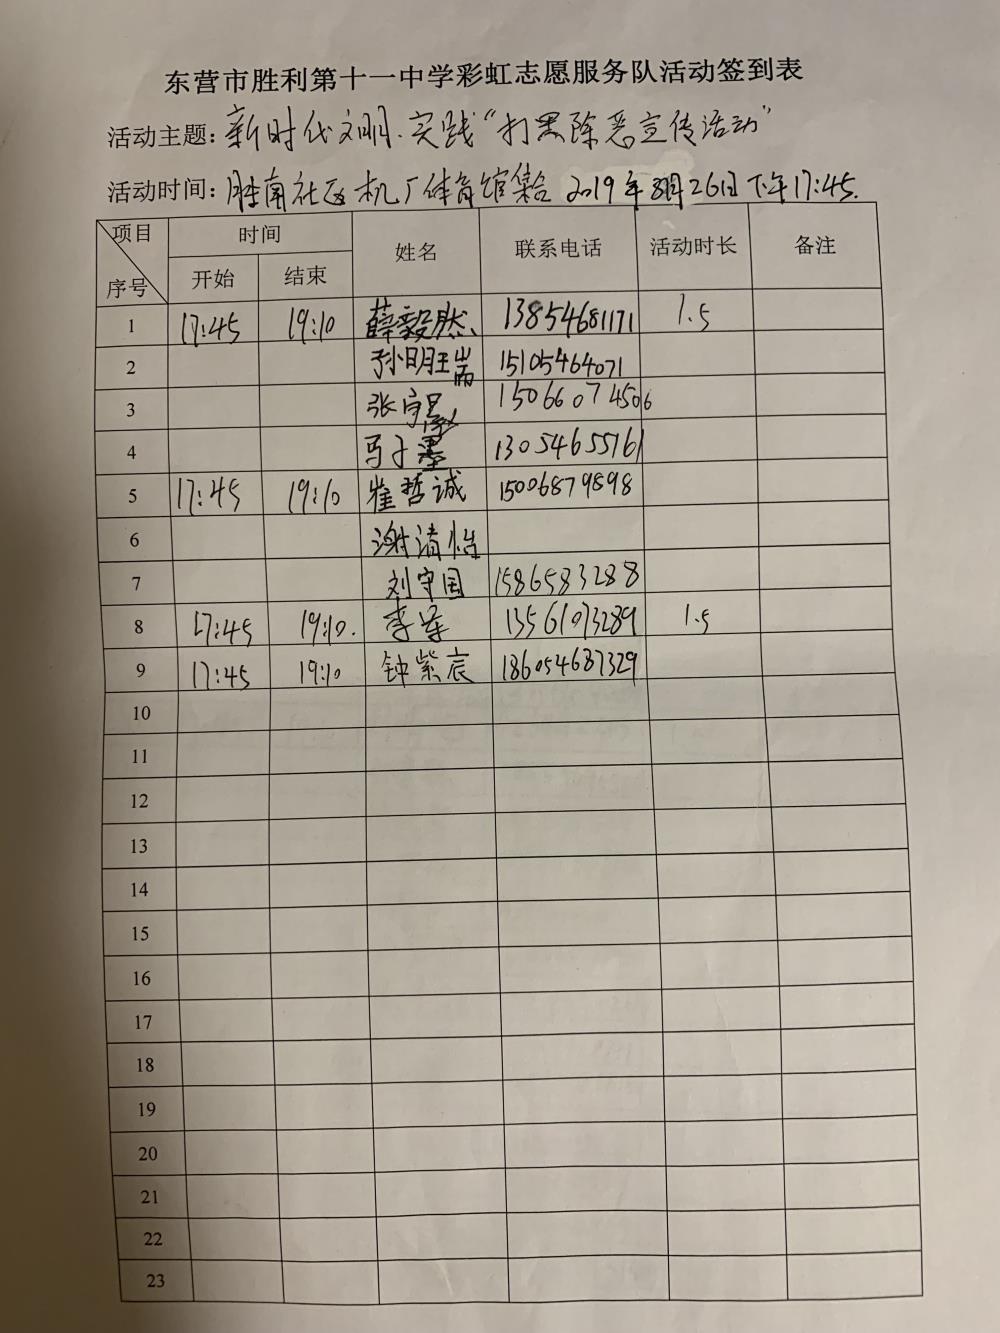 东营市胜利第十一中学彩虹志愿服务队活动签到表
活动主题: 新时代文明.实践“打黑除恶宣传活动”
活动时间: 胜南社区机厂体育馆集合 2019年8月26日下午17:45.
项目 时间 姓名 联系电话 活动时长 备注
序号 开始 结束
1 17:45 19:10 薛毅然 13854681171 1.5
2 孙明旺 15105464071
3 张宇 15066074506
4 马子墨 13054655761
5 17:45 19:10 崔哲诚 15006879898
6 谢清怡
7 刘守国 1586583288
8 17:45 19:10. 李军 13561073289 1.5
9 17:45 19:10 钟紫宸 186054687329
10
11
12
13
14
15
16
17
18
19
20
21
22
23